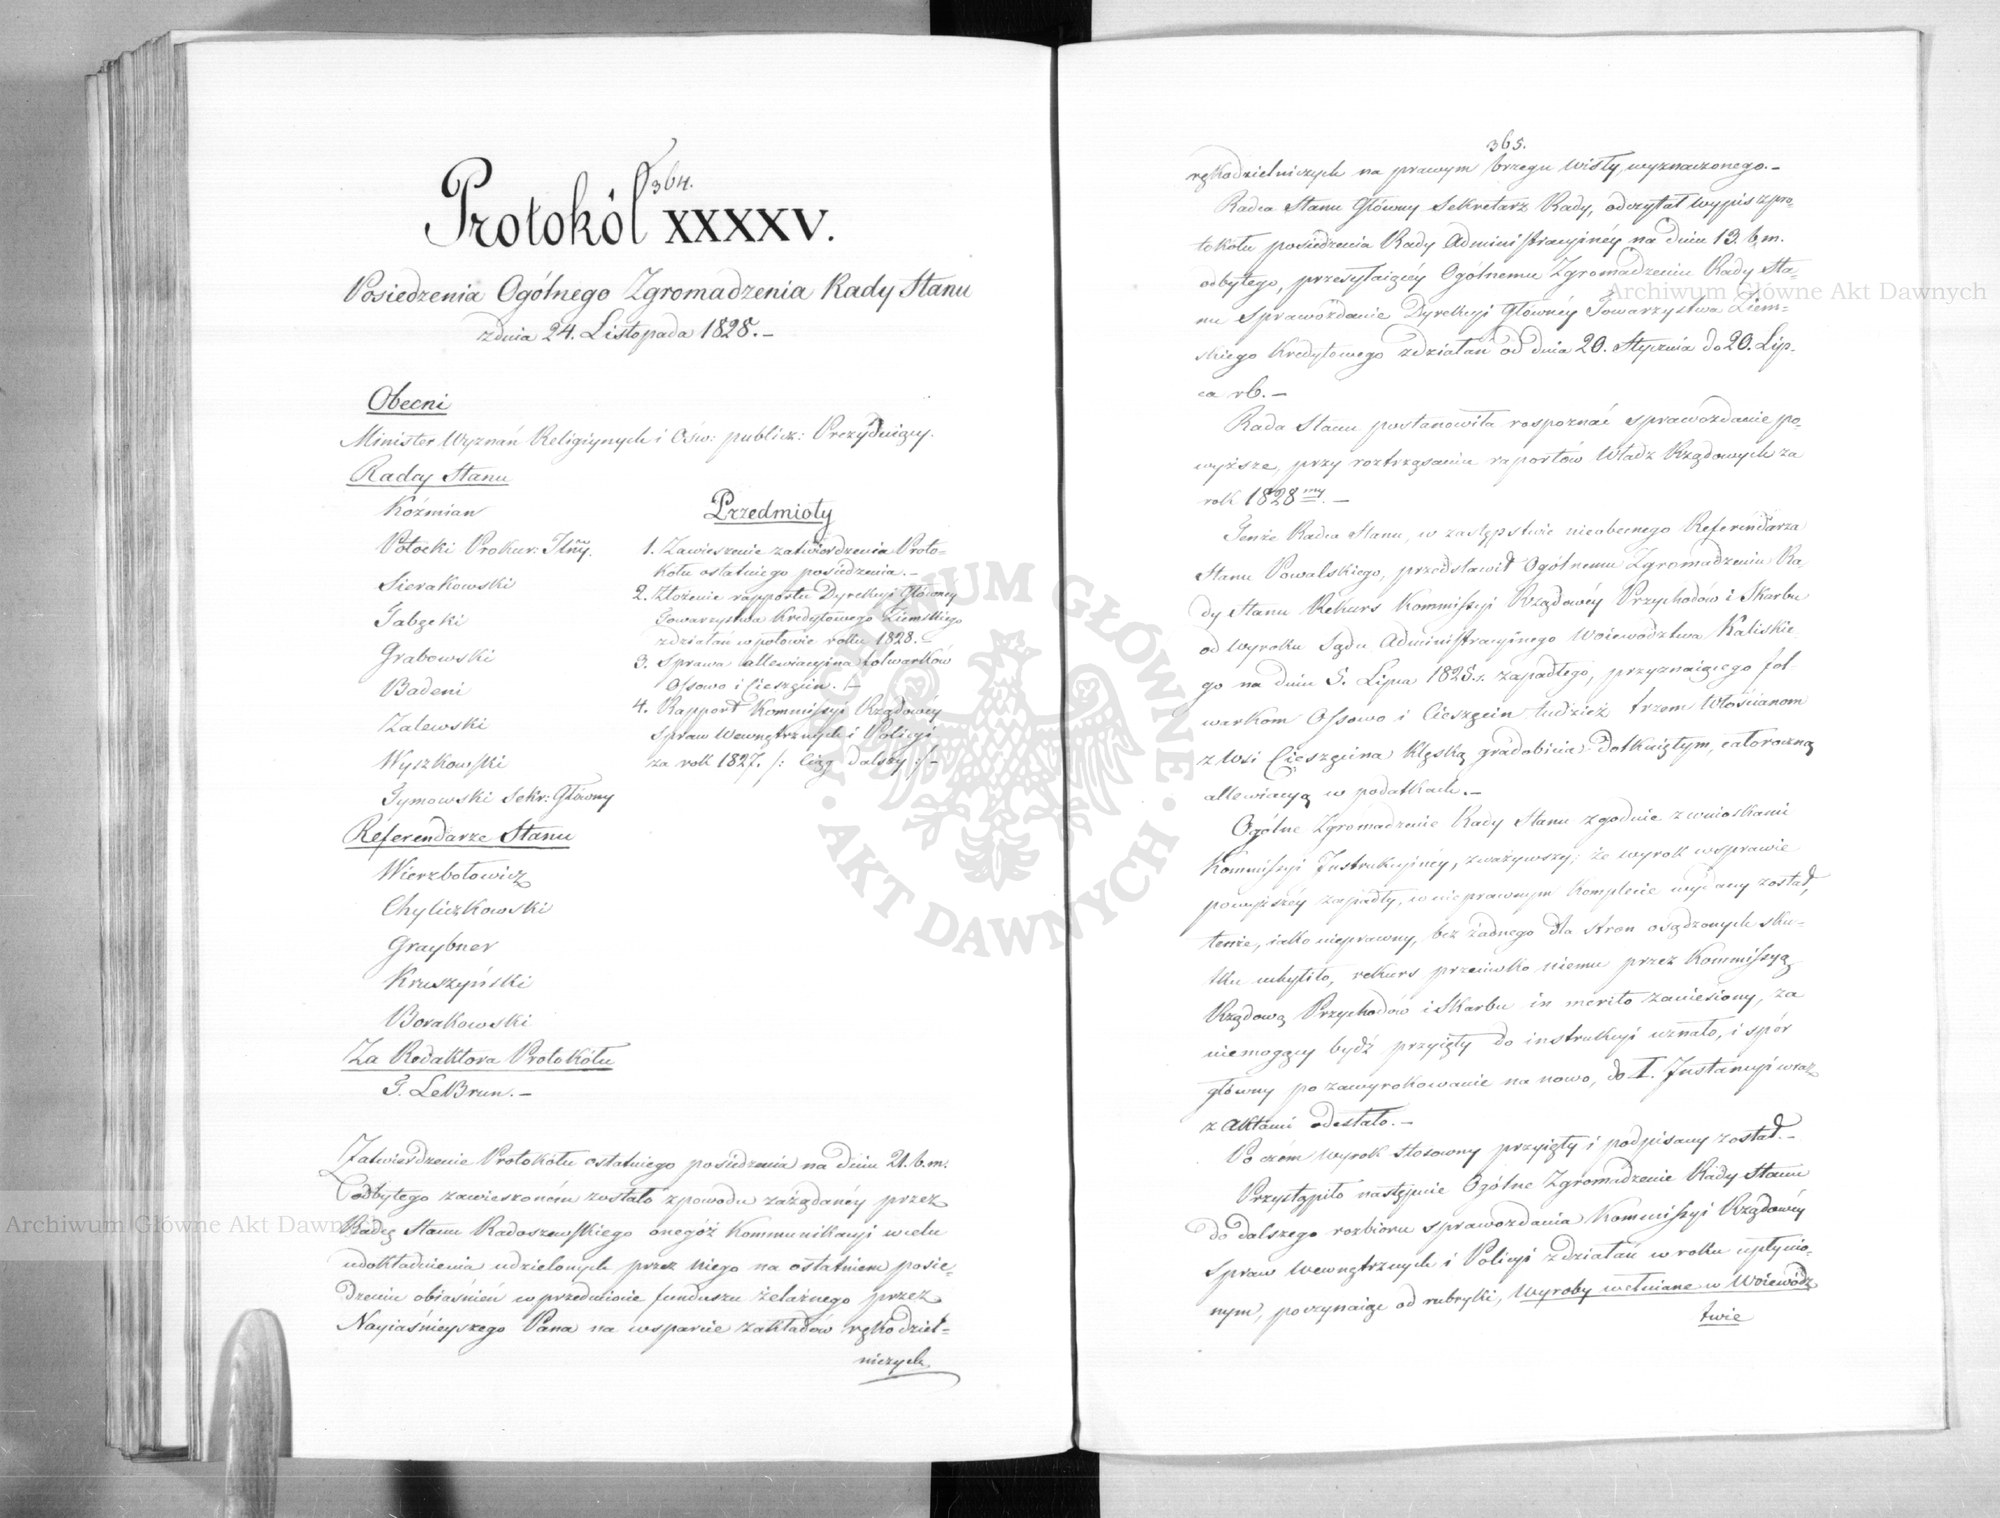 364.
Protokół XXXXV.
Posiedzenia Ogólnego Zgromadzenia Rady Stanu
z dnia 24. Listopada 1828. –
Obecni
Minister Wyznań Religiynych i Ośw: publicz: Prezyduiący.
Radcy Stanu
Koźmian
Potocki Prokur: Jlny.
Sierakowski
Tabęcki
Grabowski
Badeni
Zalewski
Wyszkowski
Tymowski Sekr: Główny
Referendarze Stanu
Wierzbołowicz
Chyliczkowski
Graybner
Kruszyński
Borakowski
Za Redaktora Protokółu
T. LeBrun. –
Przedmioty
1. Zawieszenie zatwierdzenia Proto=
kółu ostatniego posiedzenia. –
2. Złożenie rapportu Dyrekcyi Główney
Towarzystwa Kredytowego Ziemskiego
z działań w połowie roku 1828. –
3. Sprawa allewiacyina folwarków
Ossowo i Cieszęcin. –
4. Rapport Kommissyi Rządowéy
Spraw Wewnętrznych i Policyi
za rok 1827. /: Ciąg dalszy :/ –
Zatwierdzenie Protokółu ostatniego posiedzenia na dniu 21. b. m.
odbytego zawieszoném zostało z powodu zażądanéy przez
Radcę Stanu Radoszewskiego onegóż Kommunikacyi w celu
udokładnienia udzielonych przez niego na ostatniem posie=
dzeniu obiaśnień w przedmiocie funduszu żelaznego przez
Nayiaśnieyszego Pana na wsparcie zakładów rękodziel=
niczych
365.
rękodzielniczych na prawym brzegu Wisły wyznaczonego. –
Radca Stanu Główny Sekretarz Rady, odczytał wypis z pro=
tokółu posiedzenia Rady Administracyinéy na dniu 13. b. m.
odbytego, przesyłaiącéy Ogólnemu Zgromadzeniu Rady Sta=
nu Sprawozdanie Dyrekcyi Głównéy Towarzystwa Ziem=
skiego Kredytowego z działań od dnia 20. Stycznia do 20. Lip=
ca rb. –
Rada Stanu postanowiła rospoznać sprawozdanie po=
wyższe, przy roztrząsaniu raportów Władz Rządowych za
rok 1828my. –
Tenże Radca Stanu, w zastępstwie nieobecnego Referendarza
Stanu Powalskiego, przedstawił Ogólnemu Zgromadzeniu Ra
dy Stanu Rekurs Kommissyi Rządowéy Przychodów i Skarbu
od Wyroku Sądu Administracyinego Woiewództwa Kaliskie
go na dniu 5. Lipca 1825. r. zapadłego, przyznaiącego fol=
warkom Ossowo i Cieszęcin tudzież trzem Włościanom
z Wsi Cieszęcina klęską gradobicia dotkniętym, całoroczną
allewiacyą w podatkach. –
Ogólne Zgromadzenie Rady Stanu zgodnie z wnioskami
Kommissyi Instrukcyinéy, zważywszy, że wyrok w sprawie
powyższéy zapadły, w nieprawnym Komplecie wydany został,
tenże, iako nieprawny, bez żadnego dla stron osądzonych sku=
tku uchyliło, rekurs przeciwko niemu przez Kommissyą
Rządową Przychodów i Skarbu in merito zaniesiony, za
niemogący bydź przyięty do instrukcyi uznało, i spór
główny po zawyrokowanie na nowo, do I. Instancyi wraz
z Aktami odesłało. –
Po czém wyrok stosowny przyięty i podpisany został. –
Przystąpiło następnie Ogólne Zgromadzenie Rady Stanu
do dalszego rozbioru sprawozdania Kommissyi Rządowéy
Spraw Wewnętrznych i Policyi z działań w roku upłynio=
nym, poczynaiąc od rubryki, Wyroby wełniane w Woiewódz
twie
Archiwum Główne Akt Dawnych
Archiwum Główne Akt Dawnych
ARCHIWUM GŁÓWNE · AKT DAWNYCH ·